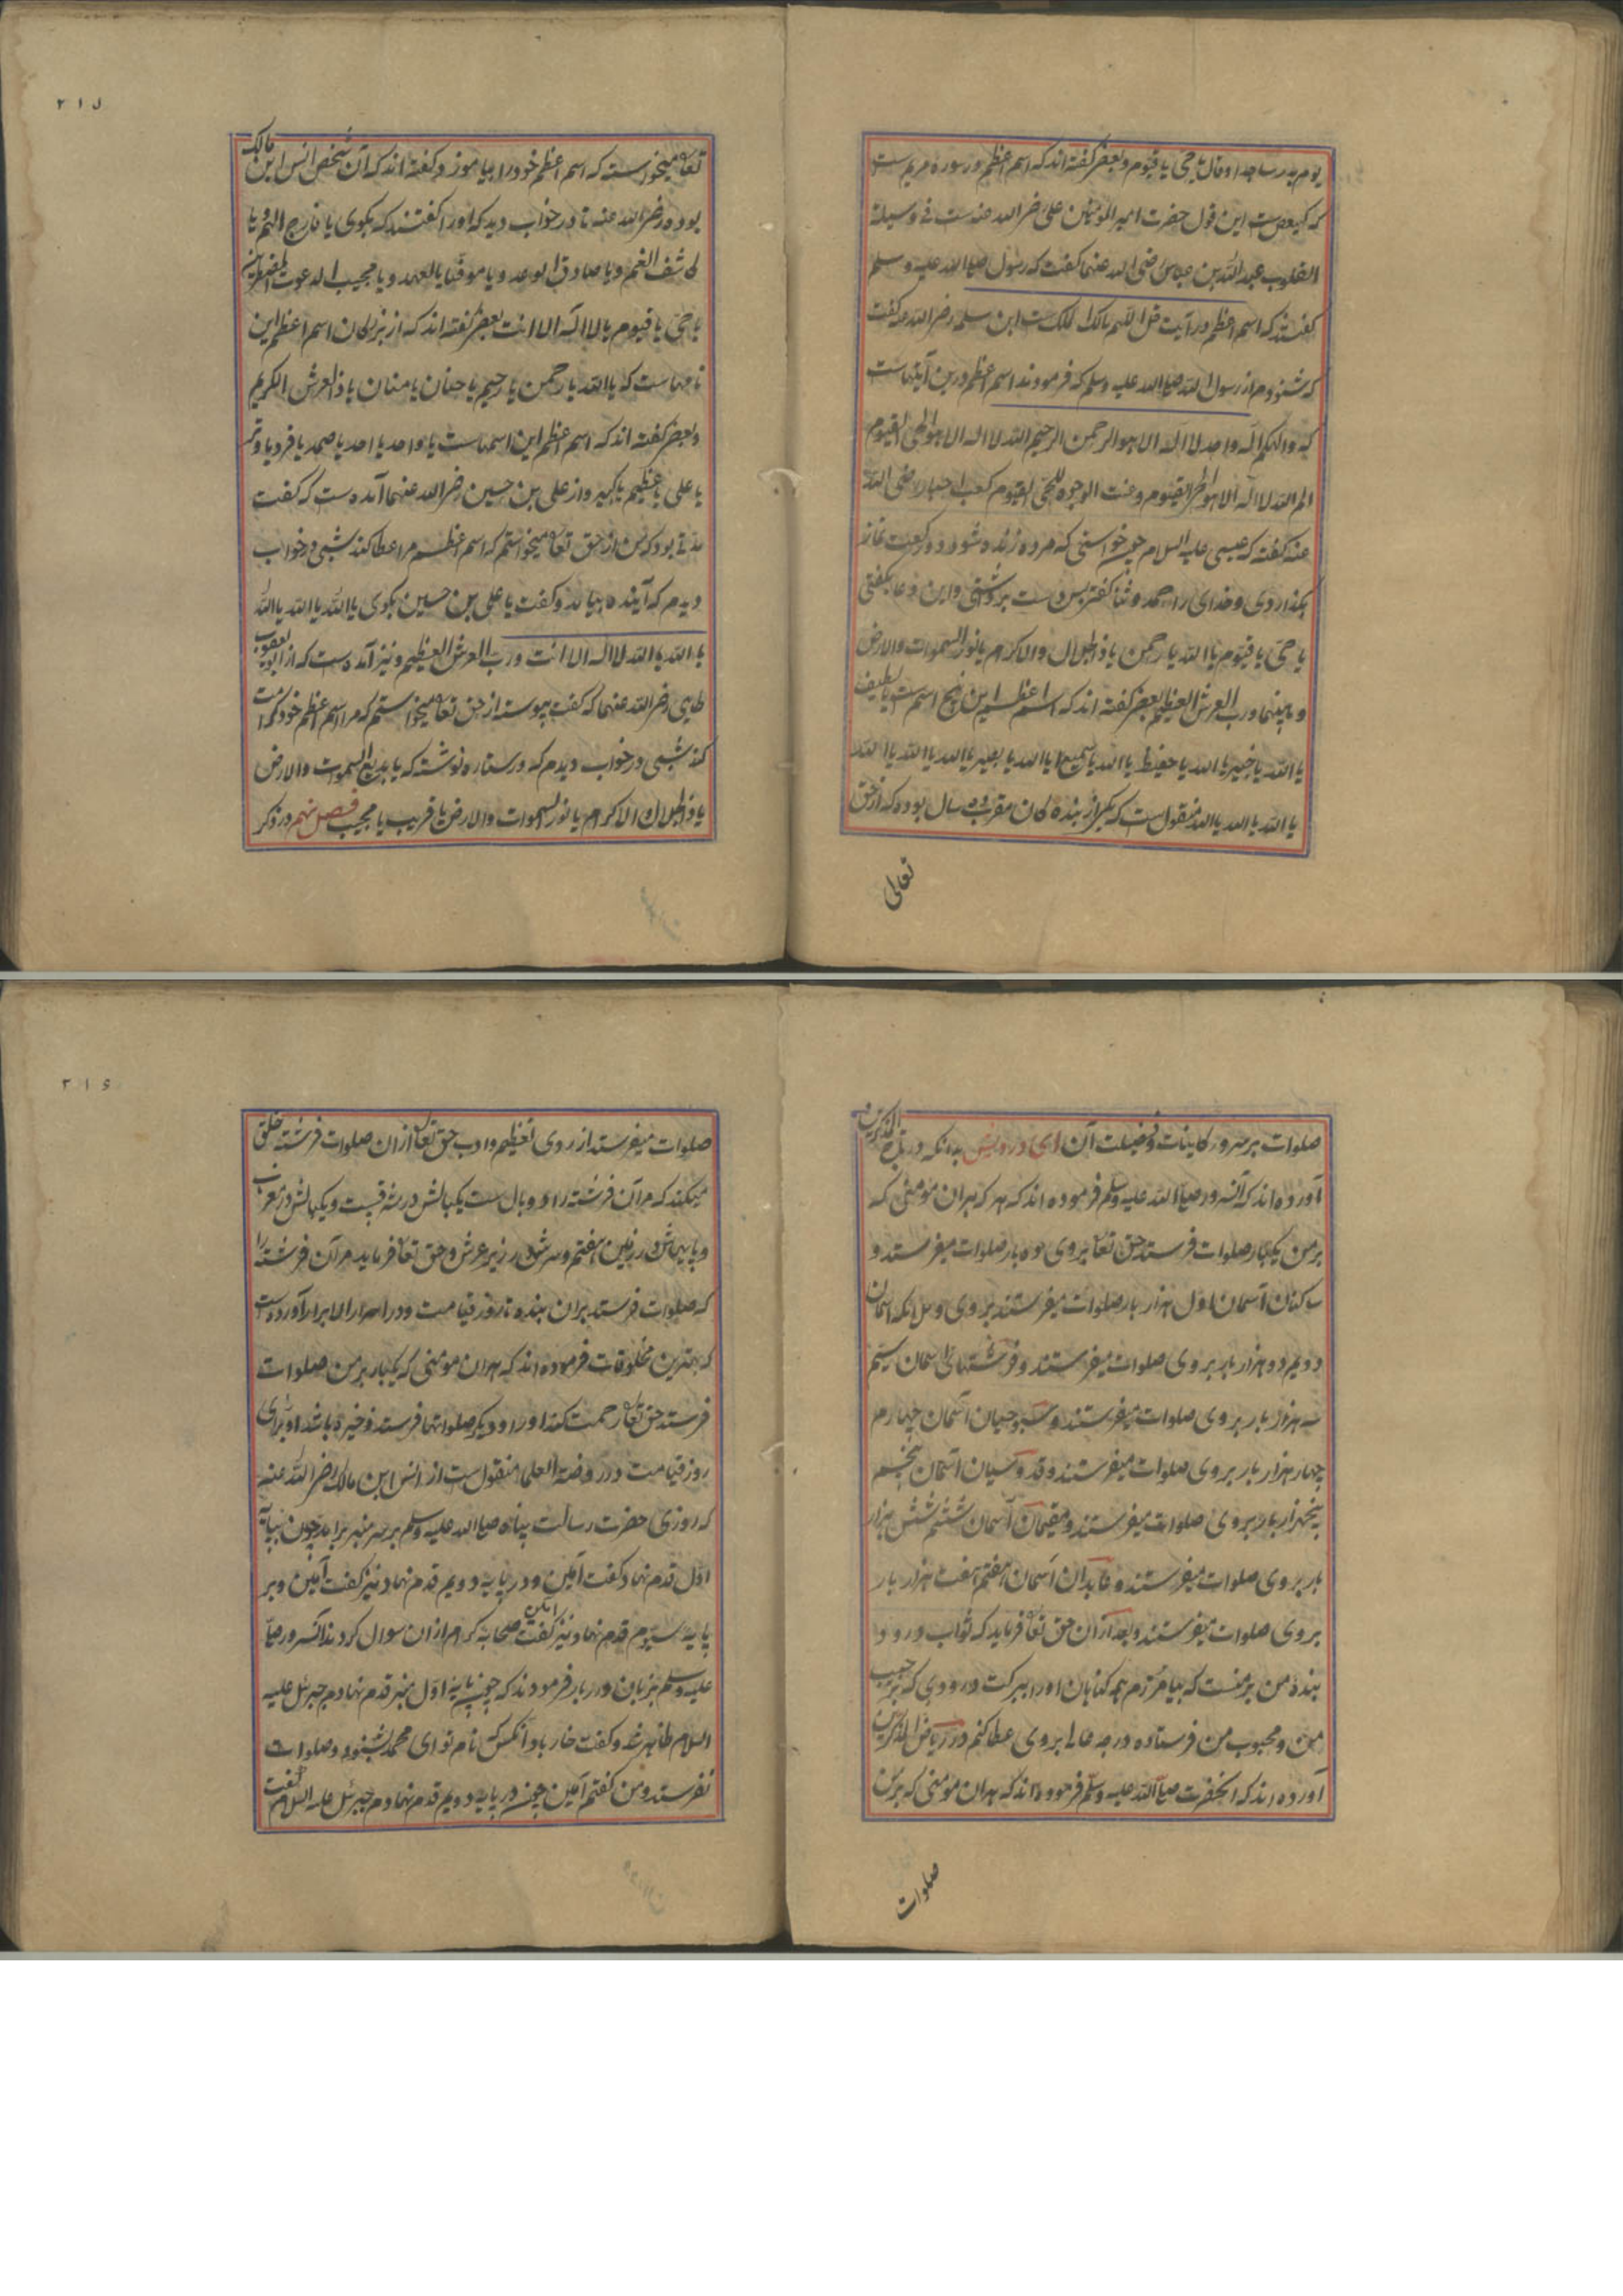 یوم بدر ساجدا و قال یا حی یا قیوم و بعضی گفته اند که اسم اعظم در سوره مریم ست
که کهیعص ست این قول حضرت امیر المومنین علی رضی الله عنه ست فی وسیلة
القلوب عبد الله بن عباس رضی الله عنهما گفت که رسول صلی الله علیه وسلم
گفتند که اسم اعظم در آیت قل اللهم مالک الملک ست ابن سلمه رضی الله عنه گفت
که شنودم از رسول الله صلی الله علیه وسلم که فرمودند اسم اعظم درین آیتهاست
که والهکم اله واحد لا اله الا هو الرحمن الرحیم الله لا اله الا هو الحی القیوم
الم الله لا اله الا هو الحی القیوم وعنت الوجوه للحی القیوم کعب احبار رضی الله
عنه گفته که عیسی علیه السلام چون خواستی که مرده زنده شود دو رکعت نماز
بگذاردی و خدای را حمد و ثنا گفتی پس دست برداشتی و این دعا بگفتی
یا حی یا قیوم یا الله یا رحمن یا ذا الجلال والاکرام یا نور السموات والارض
وما بینهما ورب العرش العظیم بعضی گفته اند که اسم اعظم این پنج اسم ست یا لطیف
یا الله یا خبیر یا الله یا حفیظ یا الله یا سمیع یا الله یا بصیر یا الله یا الله یا الله
یا الله یا الله یا الله منقول ست که یکی از بنده گان مقرب ده سال بوده که از حق
تعالی
۲۱۵
تعالی میخواسته که اسم اعظم خود را بیاموز و گفته اند که آن شخص انس ابن مالک
بوده رضی الله عنه تا در خواب دید که او را گفتند که بگوی یا فارج الهم و یا
کاشف الغم و یا صادق الوعد و یا موفیا بالعهد و یا مجیب الدعوت المضطرین
یا حی یا قیوم یا لا اله الا انت بعضی گفته اند که از بزرگان اسم اعظم این
نامهاست که یا الله یا رحمن یا رحیم یا حنان یا منان یا ذا العرش الکریم
و بعضی گفته اند که اسم اعظم این اسمهاست یا واحد یا احد یا صمد یا فرد یا وتر
یا علی یا عظیم یا کبیر و از علی بن حسین رضی الله عنهما آمده ست که گفت
مدتی بود که من از حق تعالی میخواستم که اسم اعظم مرا عطا کند شبی در خواب
دیدم که آینده بیامد و گفت یا علی بن حسین بگوی یا الله یا الله یا الله
یا الله یا الله لا اله الا انت ورب العرش العظیم و نیز آمده ست که از ابو یعقوب
طایی رضی الله عنهما که گفت پیوسته از حق تعالی میخواستم که مرا اسم اعظم خود کرامت
کند شبی در خواب دیدم که در ستاره نوشته که یا بدیع السموات والارض
یا ذا الجلال والاکرام یا نور السموات والارض یا قریب یا مجیب فصل نهم در ذکر
صلوات بر سرور کاینات و فضیلت آن ای درویش بدانکه در تاج المذکرین
آورده اند که آنسرور صلی الله علیه وسلم فرموده اند که هر که بران مومنی که
بر من یکبار صلوات فرستد حق تعالی بروی ده بار صلوات میفرستد و
ساکنان آسمان اول هزار بار صلوات میفرستند بروی و ملائکه آسمان
دویم دو هزار بار بروی صلوات میفرستند و فرشتهای آسمان سیم
سه هزار بار بروی صلوات میفرستند و سبوحیان آسمان چهارم
چهار هزار بار بروی صلوات میفرستند و قدوسیان آسمان پنجم
پنجهزار بار بروی صلوات میفرستند و مقیمان آسمان ششم شش هزار
بار بروی صلوات میفرستند و عابدان آسمان هفتم هفت هزار بار
بروی صلوات میفرستند و بعد ازان حق تعالی فرماید که ثواب درود
بنده من بر منست که بیامرزم همه گناهان او را ببرکت درودی که بر حبیب
من و محبوب من فرستاده درجه عالی بروی عطا کنم در ریاض المذکرین
آورده اند که آنحضرت صلی الله علیه وسلم فرموده اند که هران مومنی که بر من
صلوات
۲۱۶
صلوات میفرستد از روی تعظیم و ادب حق تعالی ازان صلوات فرشته خلق
میکند که مر آن فرشته را دو بال ست یکبالش در مشرقست و یکبالش در مغرب
و پایهاش در زمین هفتم و سرش در زیر عرش و حق تعالی فرماید مر آن فرشته را
که صلوات فرستد بران بنده تا روز قیامت و در اسرار الابرار آورده ست
که بهترین مخلوقات فرموده اند که هران مومنی که یکبار بر من صلوات
فرستد حق تعالی رحمت کند او را و دیگر صلواتها فرستد ذخیره باشد او برای
روز قیامت و در روضة العلما منقول ست از انس ابن مالک رضی الله عنه
که روزی حضرت رسالت پناه صلی الله علیه وسلم بر سر منبر برآمد چون بپایه
اول قدم نهاد گفت آمین و در پایه دویم قدم نهاد نیز گفت آمین و بر
پایه سیوم قدم نهاد نیز گفت آمین صحابه کرام ازان سوال کردند آنسرور صلی
علیه وسلم بزبان درربار فرمودند که چون پایه اول منبر قدم نهادم جبرئیل علیه
السلام ظاهر شد و گفت خار باد آنکس که نام تو ای محمد بشنود و صلوات
نفرستد و من گفتم آمین چون در پایه دویم قدم نهادم جبرئیل علیه السلام گفت